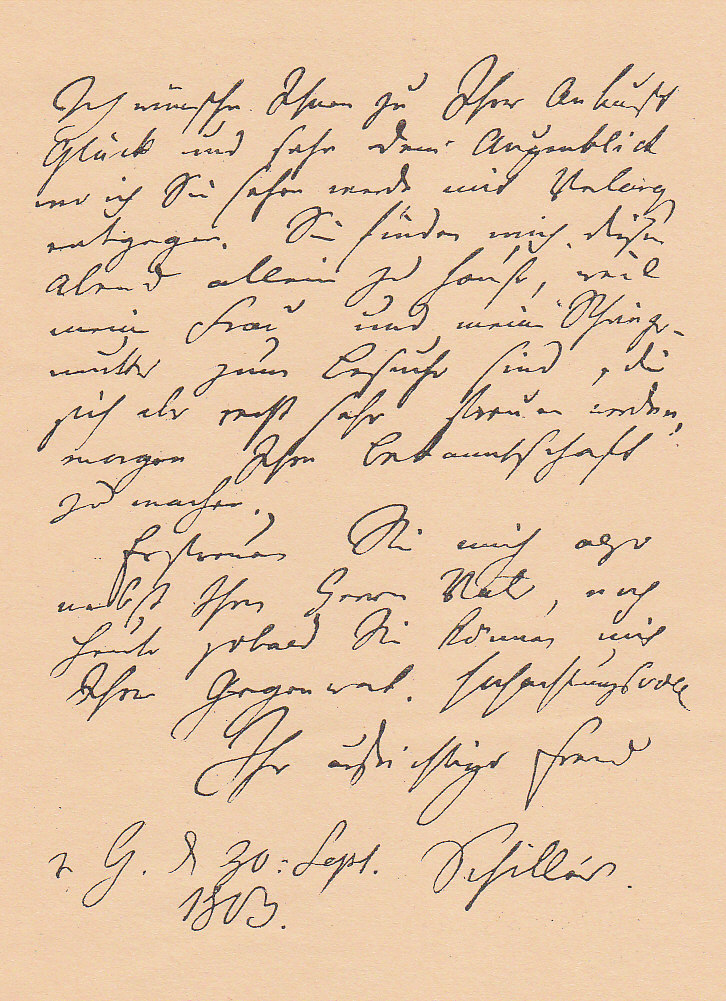 Ich wünsche Ihnen zu Ihrer Ankunft
Glück und sehe dem Augenblick
wo ich Sie sehen werde mit Verlang
entgegen. Sie finden mich diesen
Abend allein zu Hause, weil
meine Frau und meine Schwieger-
mutter zum Besuche sind, die
sich aber recht sehr freuen werden,
morgen Ihre Bekanntschaft
zu machen.
Erfreuen Sie mich also
nebst Ihrem Herrn Vater, noch
heute sobald Sie können mit
Ihrer Gegenwart. Hochachtungsvoll
Ihr aufrichtiger Freund
G. d 30. Sept. Schiller.
1803.